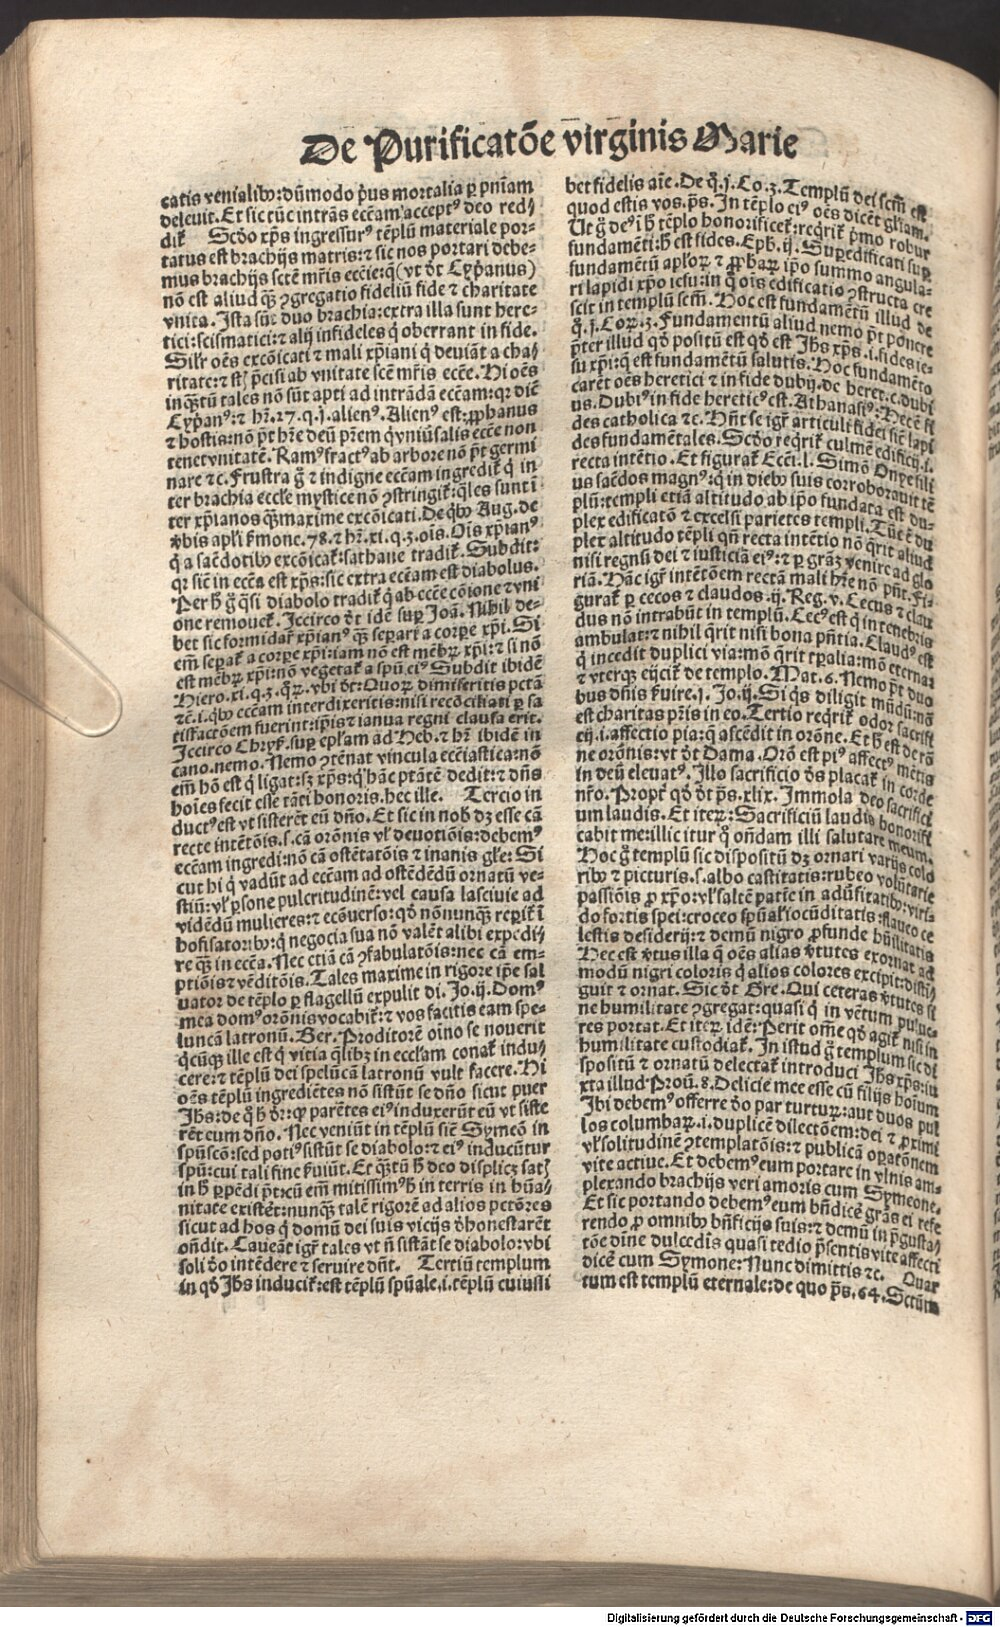 De Purificatōe v̄irginis Marie
catis venialibꝰ: dūmodo p̄us mortalia ꝑ pn̄iam
deleuit. Et sic tūc intrās ecc̄am acceptꝰ deo red⸗
dit̄ Scd̄o xp̄s ingressurꝰ tēplū materiale por⸗
tatus est brachijs matris: ⁊ sic nos portari debe⸗
mus brachijs sct̄e mr̄is ecc̄ie: q̄ (vt d̄t Cyp̄anus)
nō est aliud qꝫ ꝯgregatio fideliū fide ⁊ charitate
vnita. Ista sūt duo brachia: extra illa sunt here⸗
tici: scismatici: ⁊ alij infideles q̄ oberrant in fide.
Silr̄ oēs excōicati ⁊ mali xp̄iani q̄ deuiāt a cha⸗
ritate: ⁊ st̄ p̄cisi ab vnitate scē mr̄is ecc̄e. Hi oēs
inqꝫtū tales nō sūt apti ad intrādā ecc̄am: qꝛ dic̄
Cyp̄anꝰ: ⁊ hr̄. 27. q. j. alienꝰ. Alienꝰ est: ꝓphanus
⁊ hostis: nō p̄t hr̄e deū pr̄em q̄ vniūsalis ecc̄e non
tenet vnitatē. Ramꝰ fractꝰ ab arbore nō p̄t germi
nare ⁊c. Frustra g̊ ⁊ indigne ecc̄am ingredit̄ q̄ in
ter brachia eccl̄e mystice nō ꝯstringit̄: q̄les sunt ī
ter xp̄ianos qꝫ maxime excōicati. De q̊bꝰ Aug. de
v̄bis apl̄i ẜmone. 78. ⁊ hr̄. xi. q. 3. oīs. Oīs xp̄ianꝰ
q̄ a sac̄dotibꝰ excōicat̄: sathane tradit̄. Subdit:
qꝛ sic̄ in ecc̄a est xp̄s: sic extra ecc̄am est diabolus.
Per h̄ g̊ q̄si diabolo tradit̄ q̄ ab ecc̄e cōione ⁊ vni
one remouet̄. Iccirco d̄t idē suꝑ Joā. Nihil de⸗
bet sic formidar̄ xp̄ianꝰ qꝫ seꝑari a corꝑe xp̄i. Si
em̄ seꝑat̄ a corꝑe xp̄i: iam nō est mēbꝝ xp̄i: ⁊ si nō
est mēbꝝ xp̄i: nō vegetat̄ a spū eiꝰ Subdit ibidē
Hiero. xi. q. 3. q̄ꝝ. vbi d̄t: Quoꝝ dimiseritis pctā
⁊c̄. i. q̊bꝰ ecc̄am interdixeritis: nisi recōciliati ꝑ sa
tisfactōem fuerint: ip̄is ⁊ ianua regni clausa erit.
Iccirco Chrys̄. suꝑ epl̄am ad Heb. ⁊ hr̄ ibidē in
cano. nemo. Nemo ꝯtēnat vincula ecc̄iastica: nō
em̄ hō est q̄ ligat: sꝫ xp̄s: q̄ hāc ptātē dedit: ⁊ dn̄s
hoīes fecit esse tāti honoris. hec ille. Tercio in
ductꝰ est vt sisterēt eū dn̄o. Et sic in nob̄ dꝫ esse cā
recte intētōis. s. cā orōnis vl̄ deuotiōis: debemꝰ
ecc̄am ingredi: nō cā ostētatōis ⁊ inanis gl̄e: Si
cut hi q̄ vadūt ad ecc̄am ad ostēdēdū ornatū ve⸗
stiū: vl̄ ꝑsone pulcritudinē: vel causa lasciuie ad
vidēdū mulieres: ⁊ ecōuerso: qd̄ nōnunqꝫ reꝑit̄ ī
hosisatoribꝰ: q̄ negocia sua nō valēt alibi expedi⸗
re qꝫ in ecc̄a. Nec etiā cā ꝯfabulatōis: nec cā em⸗
ptiōis ⁊ vēditōis. Tales maxime in rigore ip̄e sal
uator de tēplo ꝑ flagellū expulit di. Jo. ij. Domꝰ
mea domꝰ orōnis vocabit̄: ⁊ vos facitis eam spe⸗
luncā latronū. Ber. Proditorē oīno se nouerit
q̄cūqꝫ ille est q̄ vitia q̄libꝫ in eccl̄am conat̄ indu⸗
cere: ⁊ tēplū dei spelūcā latronū vult facere. Hi
oēs tēplū ingrediētes nō sistūt se dn̄o sicut puer
Jhs: de q̊ h̄ d̄r: ꝙ parētes eiꝰ induxerūt eū vt siste
rēt eum dn̄o. Nec veniūt in tēplū sic̄ Symeō in
spūscō: sed potiꝰ sistūt se diabolo: ⁊ eiꝰ inducūtur
spū: cui tali fine ẜuiūt. Et qꝫtū h̄ deo displicꝫ sat⸗
in h̄ ꝑpēdi p̄t: ꝛcū em̄ mitissimꝰ h̄ in terris in hūa⸗
nitate existēt: nunqꝫ talē rigorē ad alios pctōres
sicut ad hos q̄ domū dei suis vicijs d̄honestarēt
on̄dit. Caueāt igr̄ tales vt n̄ sistāt se diabolo: vbi
soli d̄o intēdere ⁊ seruire dn̄t. Tertiū templum
in qd̊ Jhs inducit̄: est tēplū spūale. i. tēplū cuiusli
bet fidelis aīe. De q̊. j. Co. 3. Templū dei scm̄ est
quod estis vos. p̄s. In tēplo eiꝰ oēs dicēt gl̄iam.
Ut g̊ deꝰ i h̄ tēplo honorificet̄: reqrit̄ p̄mo robur
fundamēti: h̄ est fides. Eph. ij. Suꝑedificati suꝑ
fundamētū apl̄oꝝ ⁊ ꝓph̄aꝝ ip̄o summo angula⸗
ri lapidi xp̄o iesu: in q̊ oīs edificatio ꝯstructa cre
scit in templū scm̄. Hoc est fundamētū illud de
q̊. j. Coꝝ. 3. Fundamentū aliud nemo p̄t ponere
p̄ter illud qd̄ positū est qd̄ est Jhs xp̄s. i. fides ie⸗
su xp̄i: q̄ est fundamētū salutis. Hoc fundamēto
carēt oēs heretici ⁊ in fide dubij. de heret. c. dubi
us. Dubiꝰ in fide hereticꝰ est. Athanasiꝰ: Hec ē fi
des catholica ⁊c. Hn̄t se igr̄ articuli fidei sic̄ lapi
des fundamētales. Scd̄o reqrit̄ culmē edificij. i.
recta intētio. Et figurat̄ Ecc̄i. l. Simō Onye fili
us sac̄dos magnꝰ: q̄ in diebꝰ suis corroborauit tē
plū: templi etiā altitudo ab ip̄o fundata est du⸗
plex edificatō ⁊ excelsi parietes templi. Tūc ē du
plex altitudo tēpli qn̄ recta intētio nō q̄rit aliud
nisi regnū dei ⁊ iusticiā eiꝰ: ⁊ ꝑ grāꝫ venire ad glo
riā. Hāc igr̄ intētōem rectā mali hr̄e nō pn̄t. Fi⸗
gurat̄ ꝑ cecos ⁊ claudos. ij. Reg. v. Cecus ⁊ clau
dus nō intrabūt in templū. Cecꝰ est q̄ in tenebris
ambulat: ⁊ nihil q̄rit nisi bona pn̄tia. Claudꝰ est
q̄ incedit duplici via: mō q̄rit tꝑalia: mō eterna:
⁊ vterqꝫ eijcit̄ de templo. Mat. 6. Nemo p̄t duo
bus dn̄is ẜuire. j. Jo. ij. Si q̊s diligit mūdū: nō
est charitas pr̄is in eo. Tertio reqrit̄ odor sacrifi
cij. i. affectio pia: q̄ ascēdit in orōne. Et h̄ est de rō
ne orōnis: vt d̄t Dama. Orō est piꝰ affectꝰ mētis
in deū eleuatꝰ. Illo sacrificio d̄s placat̄ in corde
nr̄o. Propt̄ qd̄ d̄t p̄s. xlix. Immola deo sacrifici
um laudis. Et iteꝝ: Sacrificiū laudis honorifi
cabit me: illic itur q̊ on̄dam illi salutare meum.
Hoc g̊ templū sic dispositū dꝫ ornari varijs colo
ribꝰ ⁊ picturis. s. albo castitatis: rubeo volūtarie
passiōis ꝓ xp̄o: vl̄ saltē patn̄e in adūsitatibꝰ: viri⸗
do fortis spei: croceo spūal̄ iocūditatis: flaueo ce
lestis desiderij: ⁊ demū nigro ꝓfunde hūilitatis
Hec est v̄tus illa q̄ oēs alias v̄tutes exornat ad
modū nigri coloris q̄ alios colores excipit: disti⸗
guit ⁊ ornat. Sic d̄t Gre. Qui ceteras v̄tutes si
ne humilitate ꝯgregat: quasi q̄ in vētum pulue⸗
res portat. Et iteꝝ idē: Perit om̄e qd̄ agit̄ nisi in
humilitate custodiat̄. In istud g̊ templum sic di
spositū ⁊ ornatū delectat̄ introduci Jhs xp̄s: iu
xta illud Prou. 8. Delicie mee esse cū filijs hoīum
Ibi debemꝰ offerre d̄o par turtuꝝ: aut duos pul
los columbaꝝ. i. duplicē dilectōem: dei ⁊ ꝓximi
vl̄ solitudinē ꝯtemplatōis: ⁊ publicā oꝑatōnem
vite actiue. Et debemꝰ eum portare in vlnis am⸗
plexando brachijs veri amoris cum Symeone.
Et sic portando debemꝰ eum bn̄dicē: grās ei refe
rendo ꝓ omnibꝰ bn̄ficijs suis: ⁊ demū in p̄gusta⸗
tōe diuīe dulcedīs quasi tedio p̄sentis vite affecti
dicē cum Symone: Nunc dimittis ⁊c. Quar
tum est templū eternale: de quo p̄s. 64. Sctūm
Digitalisierung gefördert durch die Deutsche Forschungsgemeinschaft - DFG